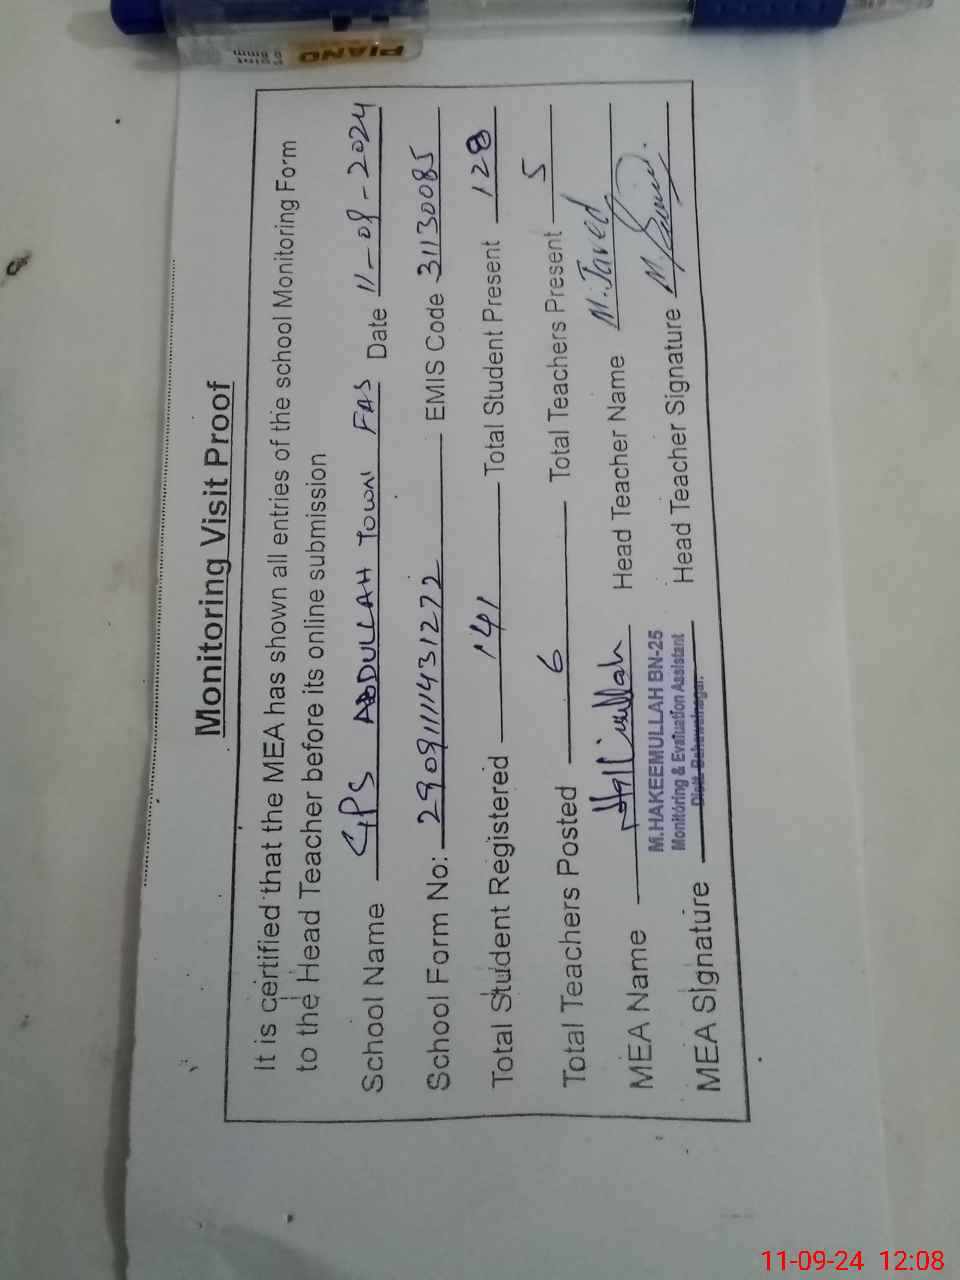 PIANO
Point
0.8mm
Monitoring Visit Proof
It is certified that the MEA has shown all entries of the school Monitoring Form
to the Head Teacher before its online submission
School Name GPS ABDULLAH TOWN FAS Date 11-09-2024
School Form No: 290911111431272 EMIS Code 31130085
Total Student Registered 141 Total Student Present 128
Total Teachers Posted 6 Total Teachers Present 5
MEA Name Head Teacher Name M.Javed
M.HAKEEMULLAH BN-25
Monitoring & Evaluation Assistant
Distt. Bahawalnagar.
MEA Signature Head Teacher Signature
11-09-24 12:08